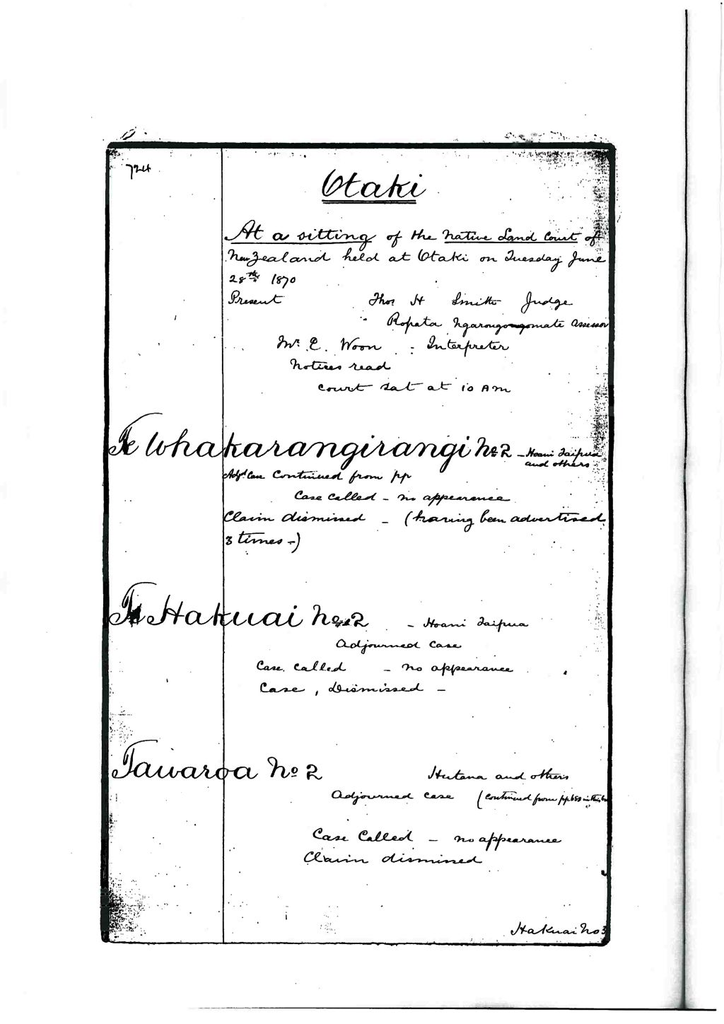 724
Otaki
At a sitting of the Native Land Court of
New Zealand held at Otaki on Tuesday June
28th 1870
Present Thos H Smith Judge
" Ropata Ngarongomate Assessor
Mr. E. Woon " Interpreter
Notices read
Court sat at 10 AM
Te Whakarangirangi No 2 - Hoani Taipua
and others
Continued from pp
Case called - no appearance
Claim dismissed - (having been advertised
3 times -)
Te Hakuai No 2 - Hoani Taipua
Adjourned Case
Case called - no appearance
Case, Dismissed -
Tawaroa No 2 Hutana and others
Adjourned case (continued from pp
Case Called - no appearance
Claim dismissed
Hakuai No 3